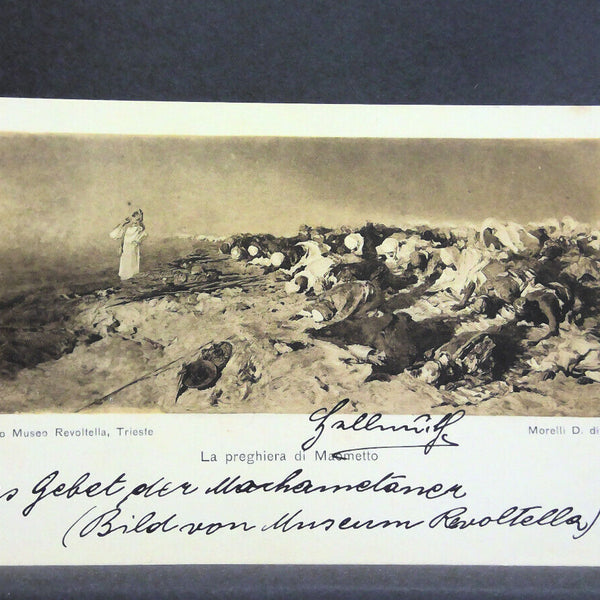 o Museo Revoltella, Trieste
Morelli D. di
La preghiera di Maometto
s Gebet der Mochametaner
(Bild von Museum Revoltella)